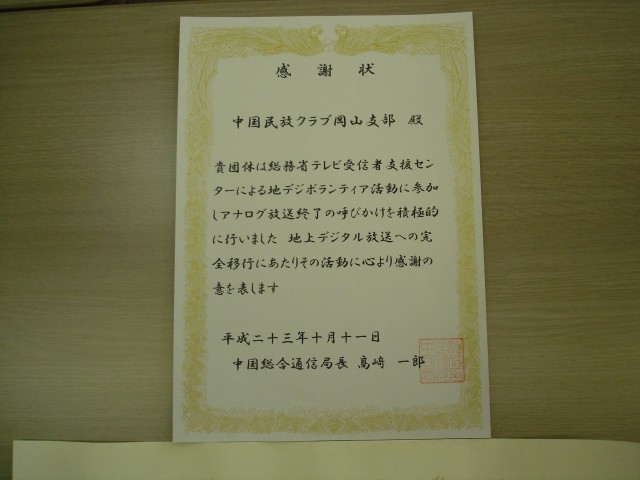 感謝状
中国民放クラブ岡山支部 殿
貴団体は総務省テレビ受信者支援セン
ターによる地デジボランティア活動に参加
しアナログ放送終了の呼びかけを積極的
に行いました 地上デジタル放送への完
全移行にあたりその活動に心より感謝の
意を表します
平成二十三年十月十一日
中国総合通信局長 高﨑 一郎